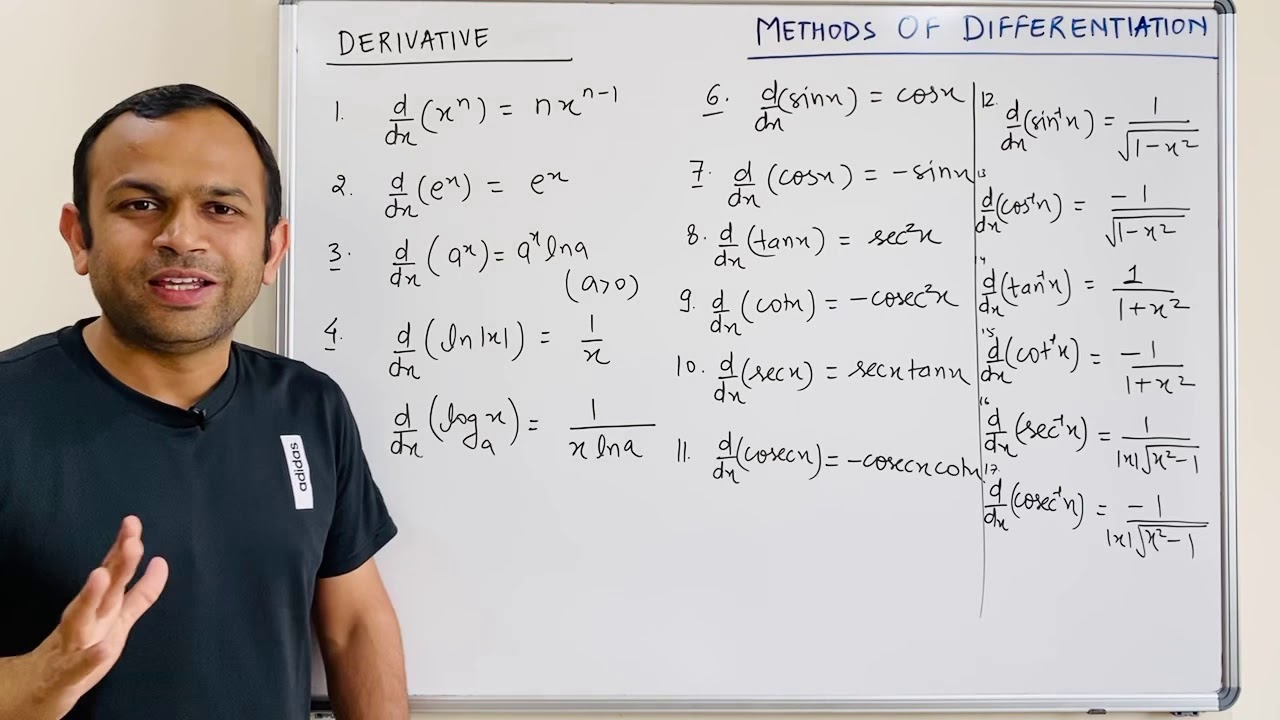 DERIVATIVE
METHODS OF DIFFERENTIATION
1. d/dx (xⁿ) = nxⁿ⁻¹
2. d/dx (eˣ) = eˣ
3. d/dx (aˣ) = aˣ lna
(a>0)
4. d/dx (ln|x|) = 1/x
d/dx (logₐx) = 1/(x lna)
6. d/dx (sinx) = cosx
7. d/dx (cosx) = -sinx
8. d/dx (tanx) = sec²x
9. d/dx (cotx) = -cosec²x
10. d/dx (secx) = secxtanx
11. d/dx (cosecx) = -cosecxcotx
12. d/dx (sin⁻¹x) = 1/√(1-x²)
13 d/dx (cos⁻¹x) = -1/√(1-x²)
14 d/dx (tan⁻¹x) = 1/(1+x²)
15 d/dx (cot⁻¹x) = -1/(1+x²)
16 d/dx (sec⁻¹x) = 1/(|x|√(x²-1))
17. d/dx (cosec⁻¹x) = -1/(|x|√(x²-1))
adidas